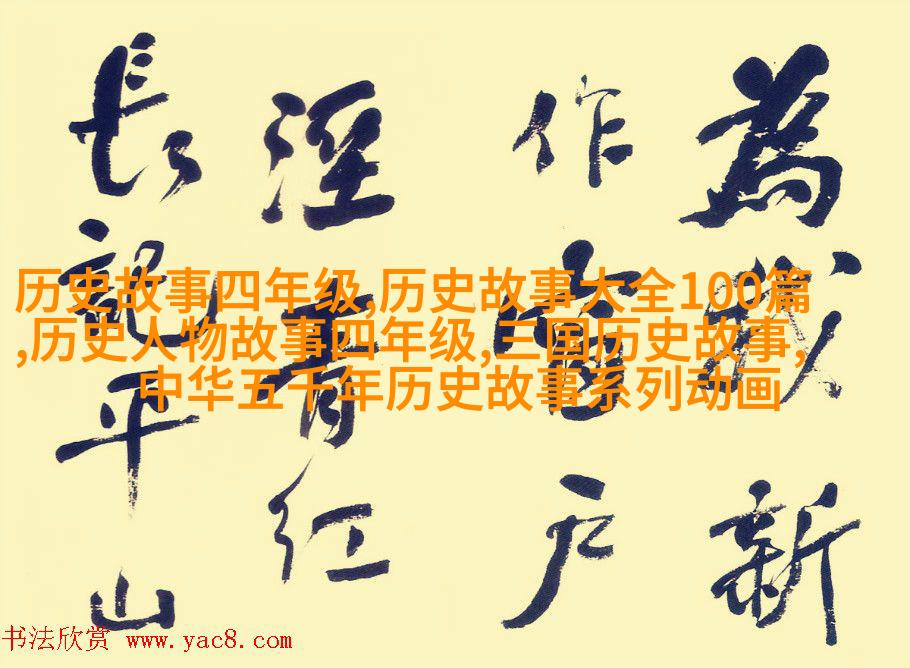 為我新
作户
红
長記平山
历史故事四年级,历史故事大全100篇
,历史人物故事四年级,三国历史故事,
中华五千年历史故事系列动画
书法欣赏 www.yac8.com